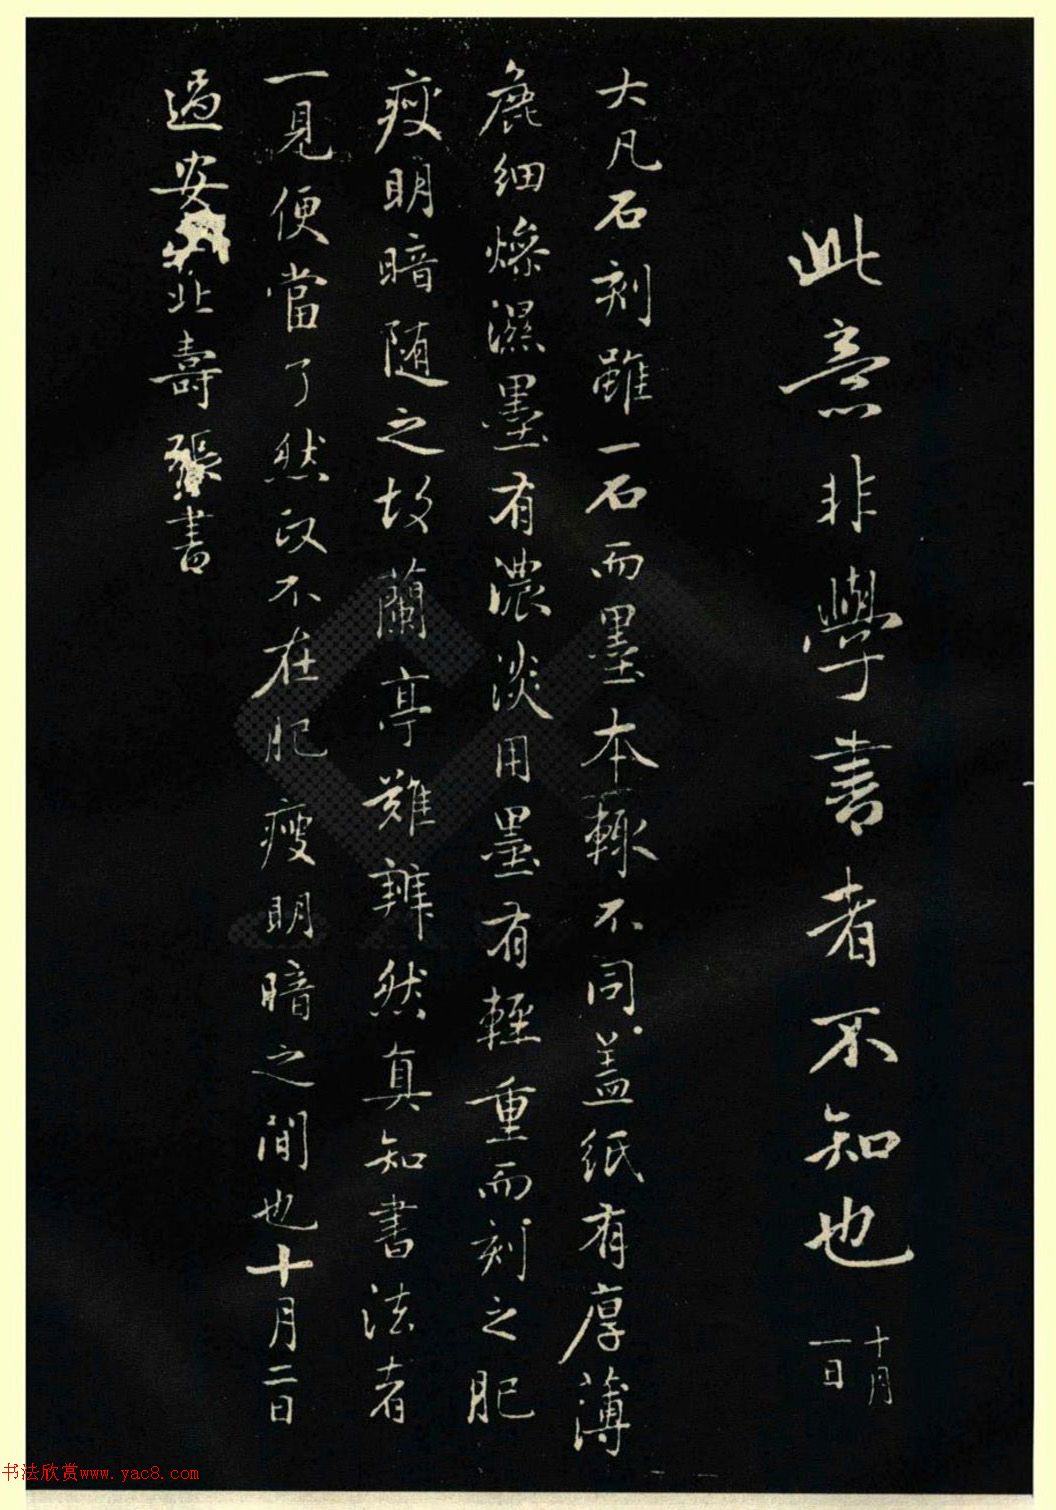 此意非學書者不知也
十月
一日
大凡石刻雖一石而墨本輙不同盖紙有厚薄
麁細燥濕墨有濃淡用墨有輕重而刻之肥
瘦明暗随之故蘭亭難辨然真知書法者
一見便當了然政不在肥瘦明暗之間也十月二日
過安山北壽張書
书法欣赏www.yac8.com